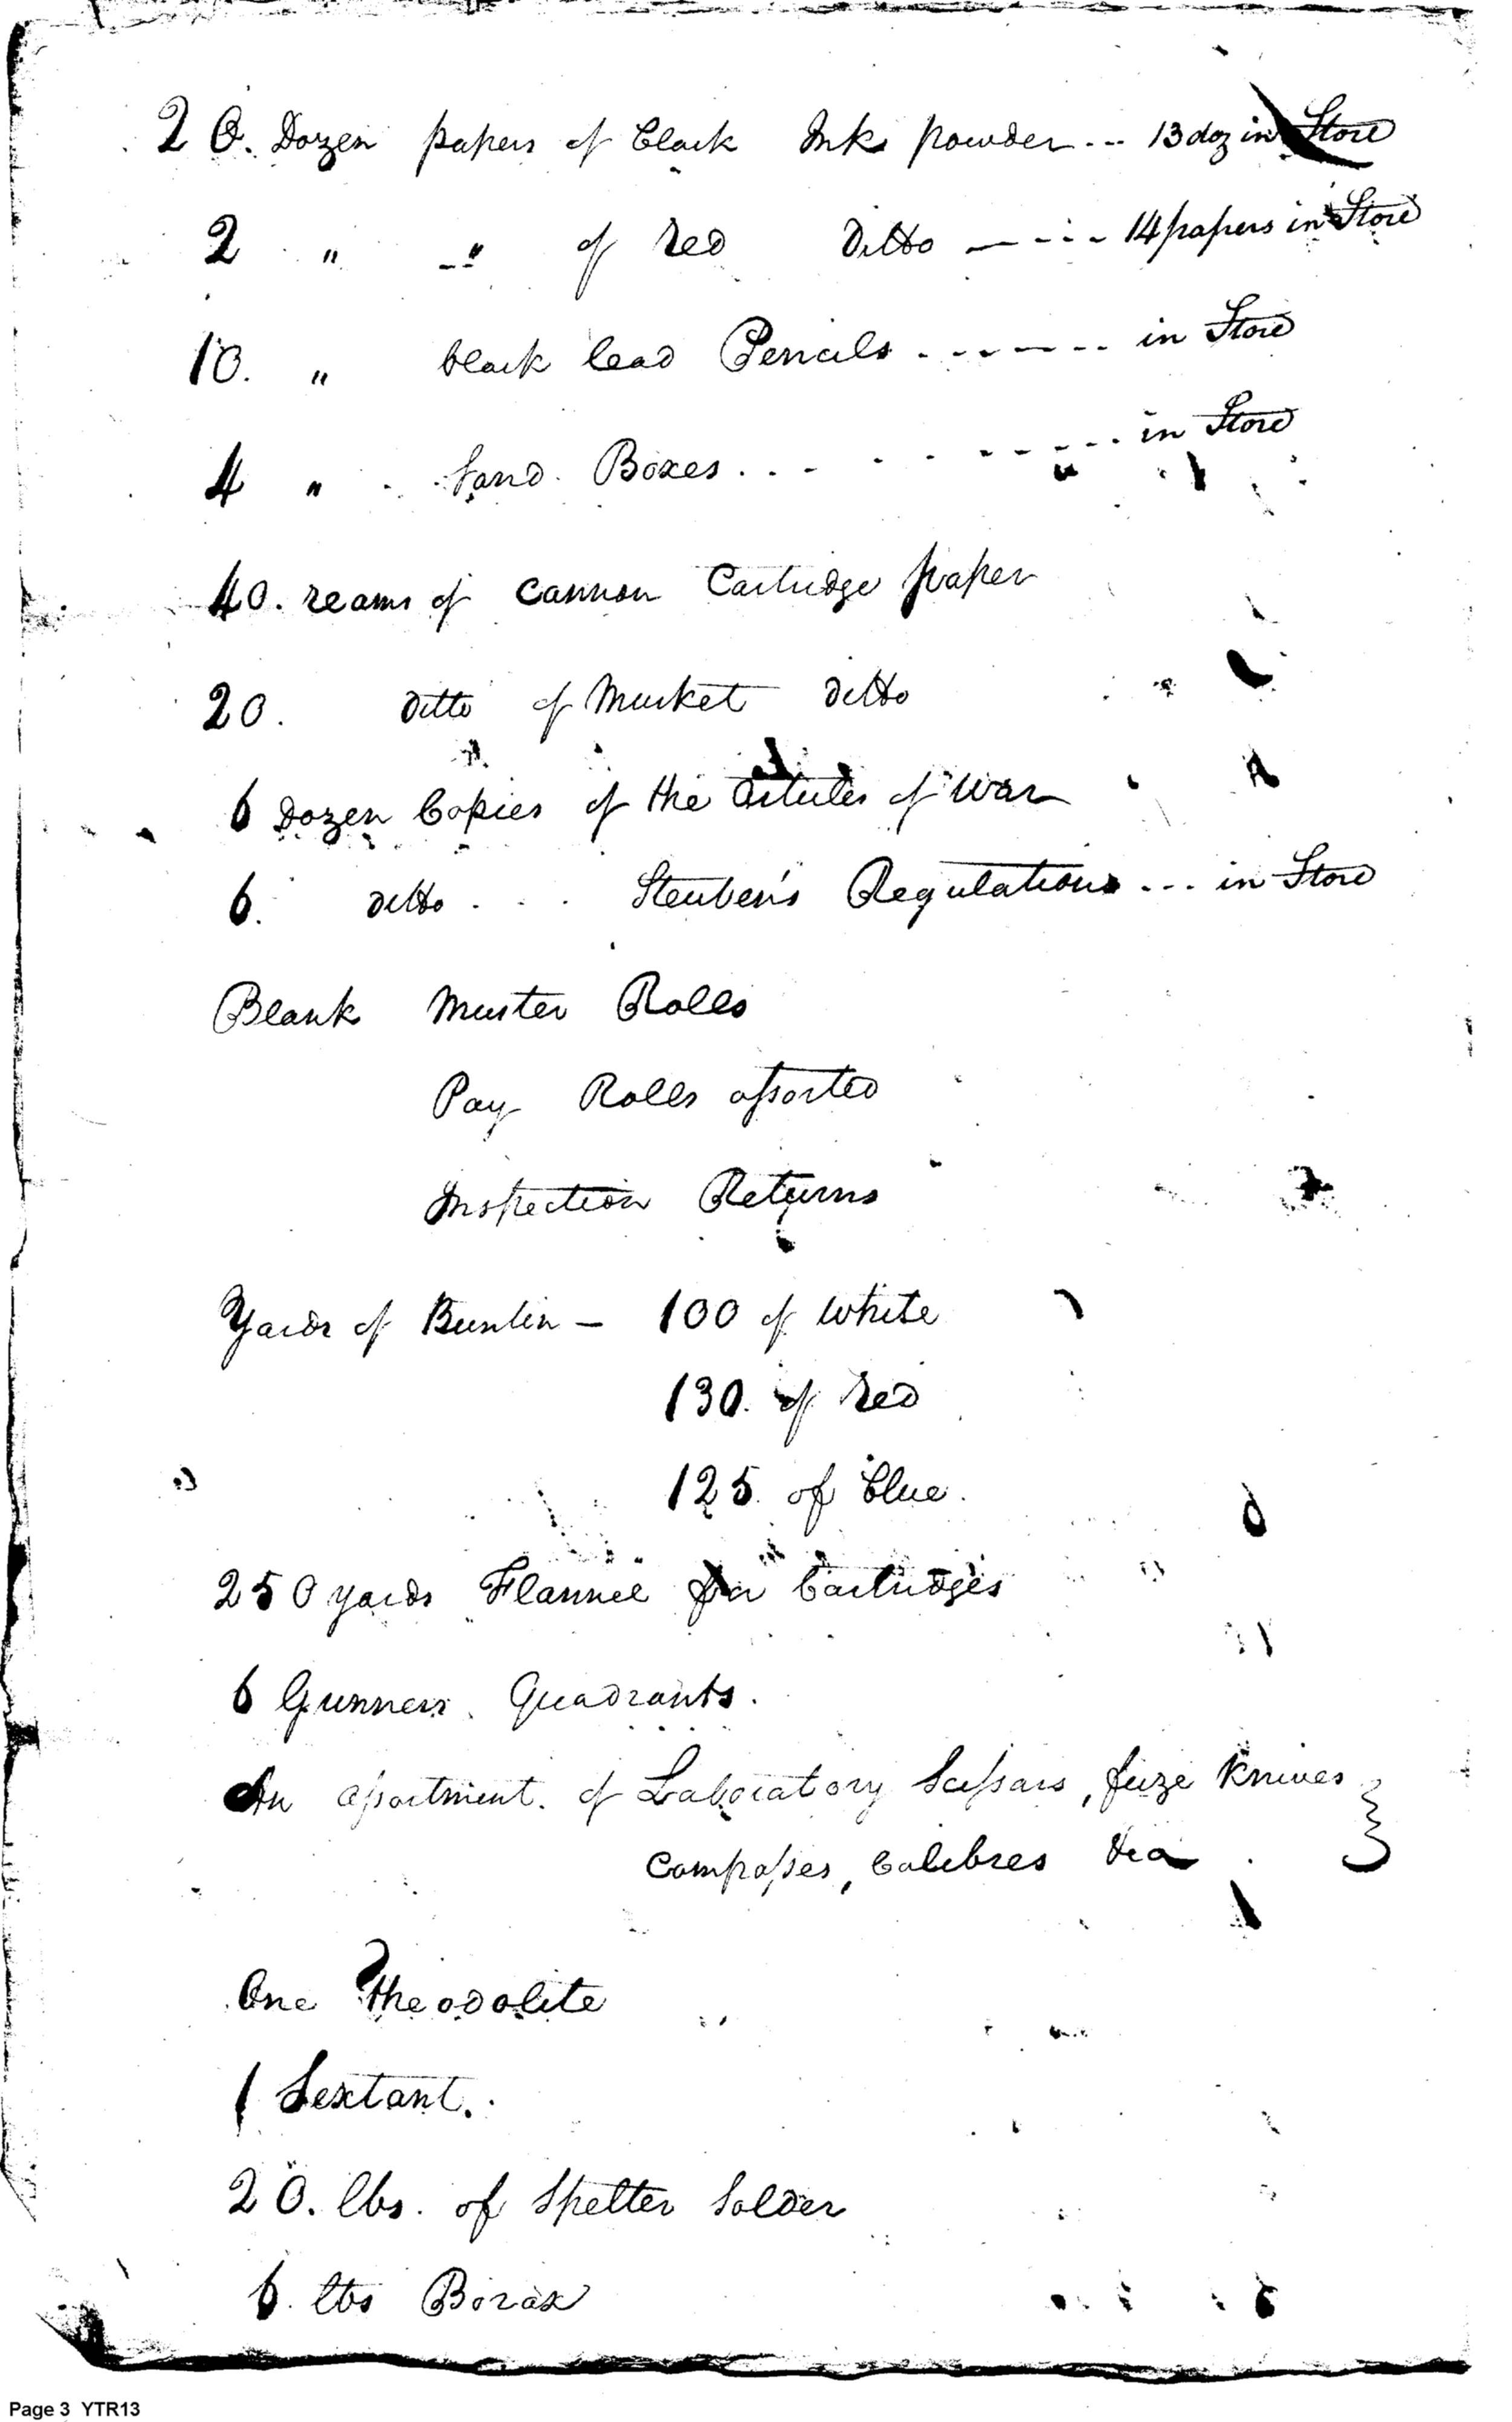 20. Dozen papers of black Ink powder... 13 doz in Store
2 " " of red Ditto ---- 14 papers in Store
10. " black lead Pencils ------- in Store
4 " Sand Boxes... - - - - - - - in Store
40. reams of Cannon Cartridge paper
20. ditto of Musket ditto
6 Dozen Copies of the Articles of War
6. ditto... Steuben's Regulations... in Store
Blank Muster Rolls
Pay Rolls assorted
Inspection Returns
Yards of Buntin - 100 of white
130. of red
125. of blue.
250 yards Flannel for Cartridges
6 Gunners Quadrants.
An assortment. of Laboratory Scissars, fuze Knives
Compasses, Calibres &ca
One Theodolite
1 Sextant.
20. lbs. of Spelter Solder
6. lbs Borax
Page 3 YTR13